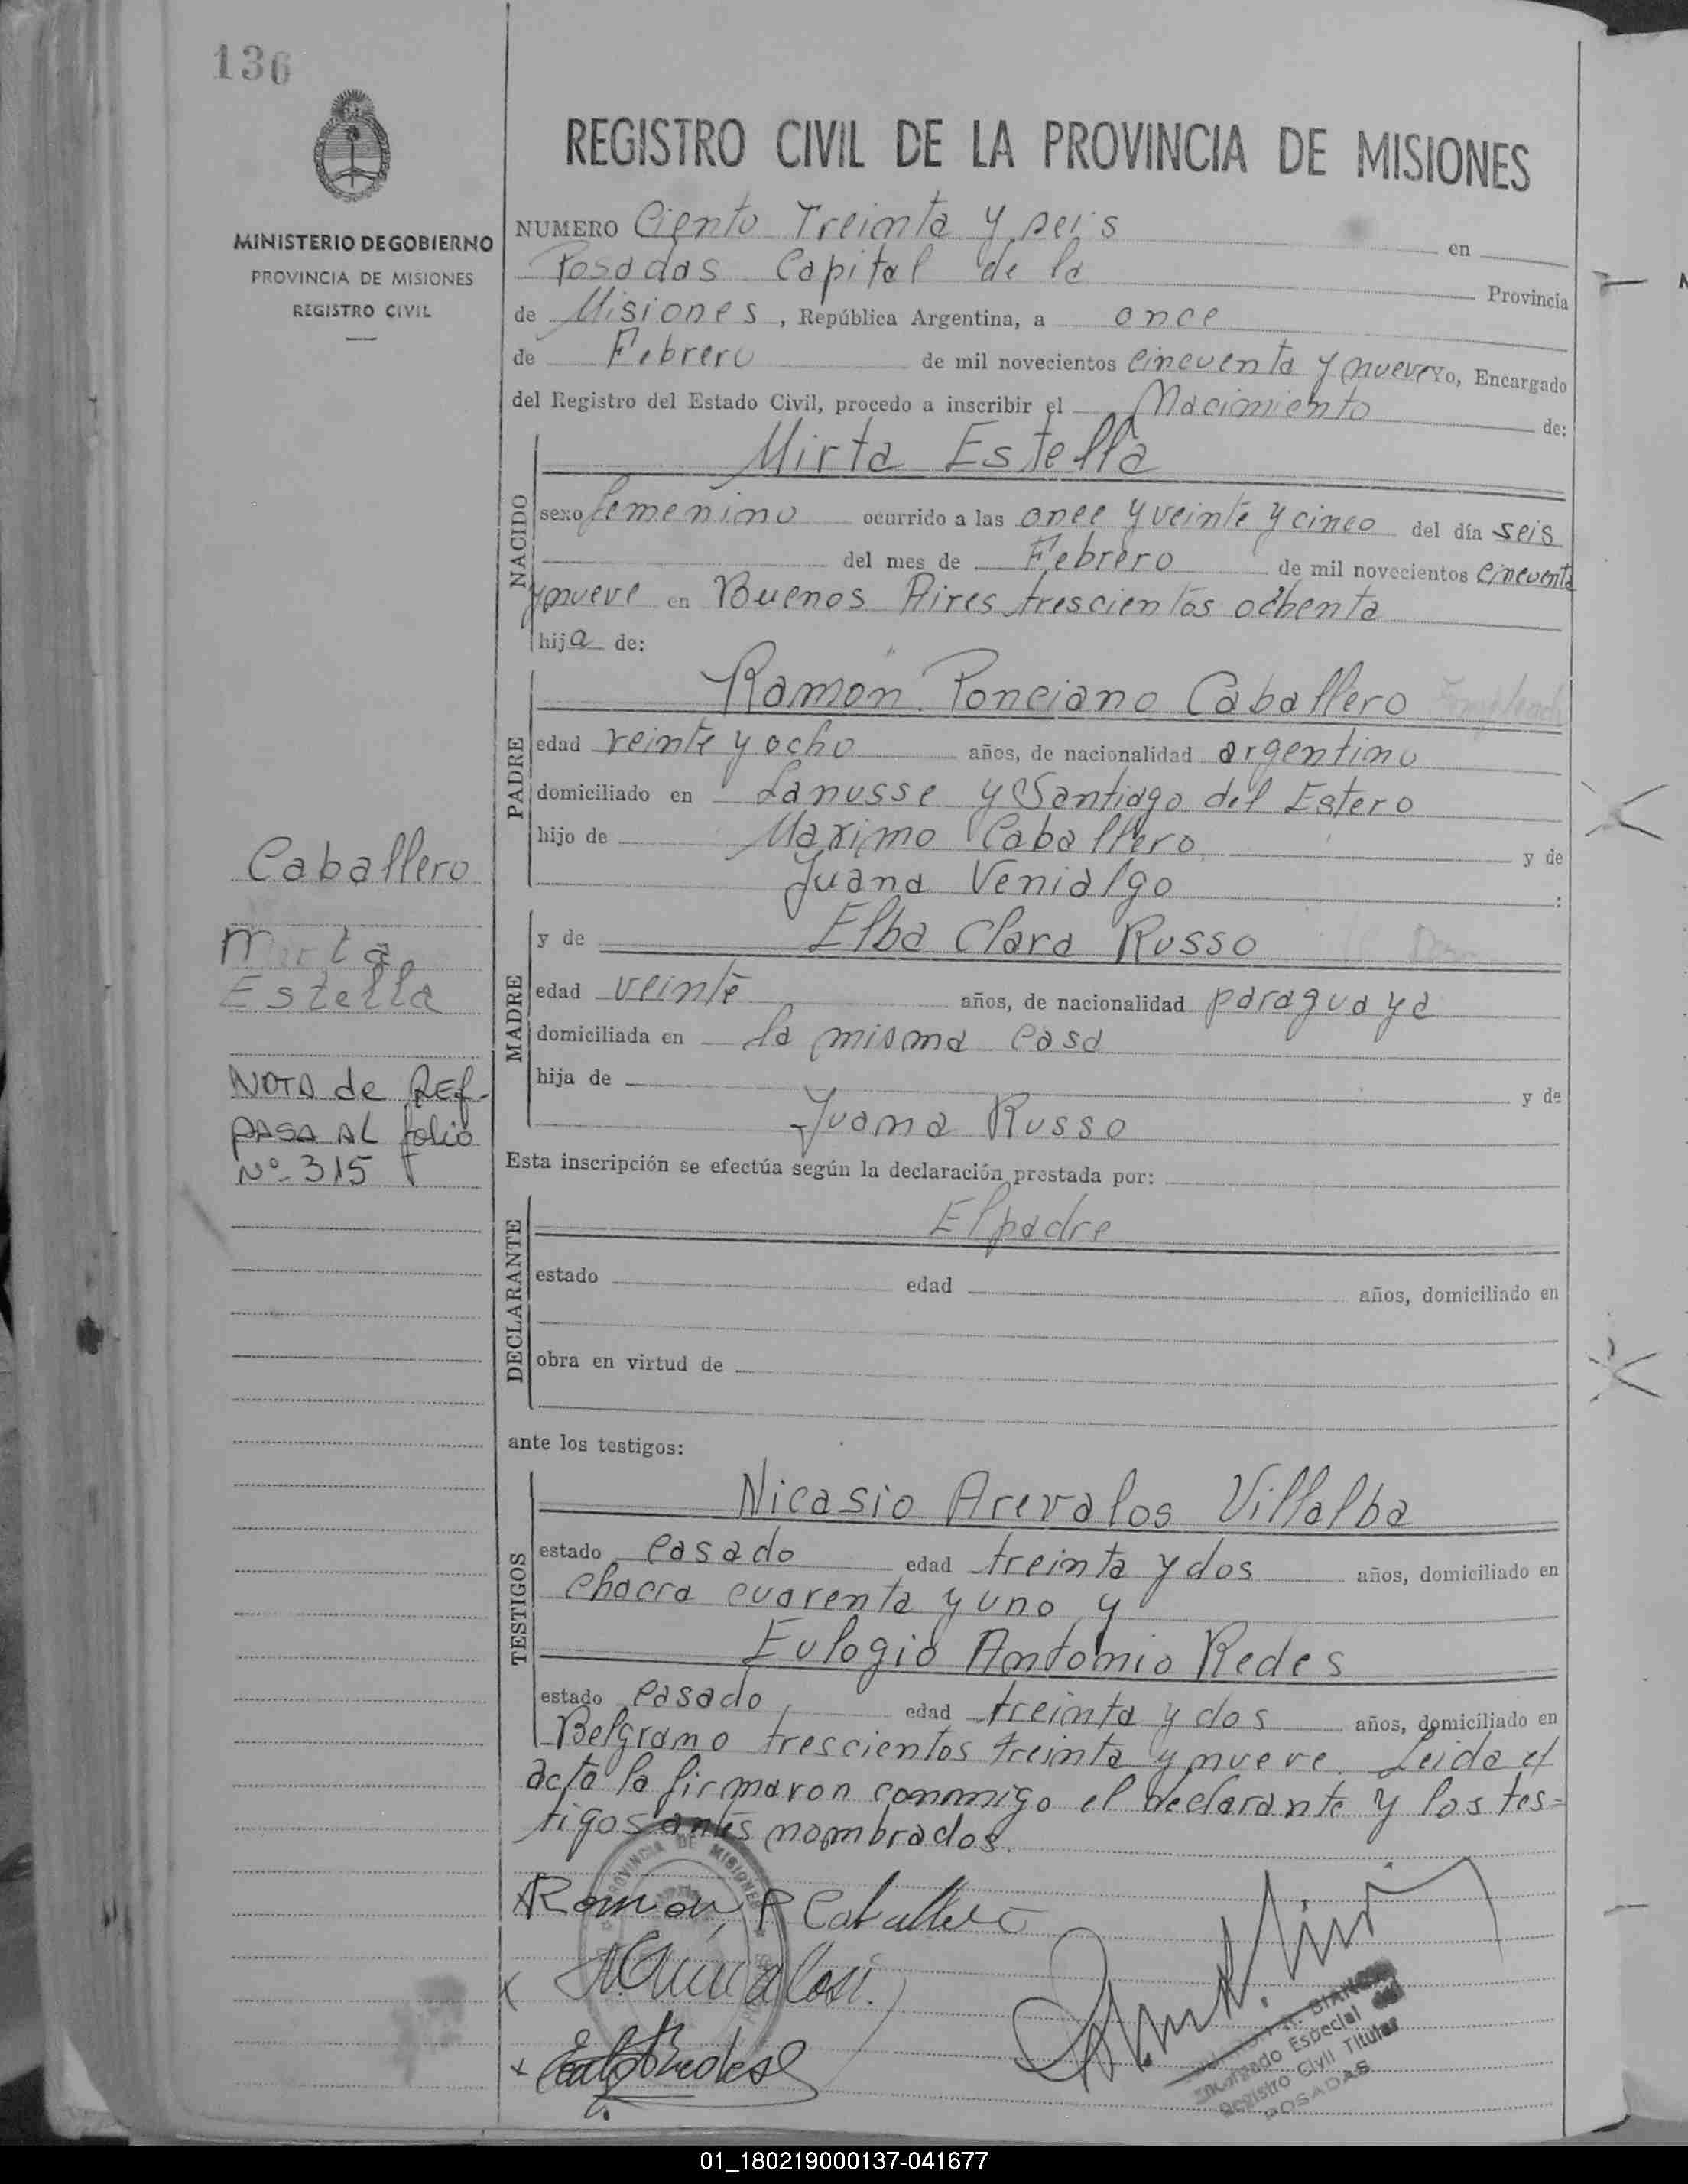 136
MINISTERIO DE GOBIERNO
PROVINCIA DE MISIONES
REGISTRO CIVIL
REGISTRO CIVIL DE LA PROVINCIA DE MISIONES
NUMERO Ciento Treinta y seis en
Posadas Capital de la Provincia
de Misiones, República Argentina, a once
de Febrero de mil novecientos cincuenta y nueve Yo, Encargado
del Registro del Estado Civil, procedo a inscribir el Nacimiento de:
NACIDO
Mirta Estella
sexo femenino ocurrido a las once y veinte y cinco del día seis
del mes de Febrero de mil novecientos cincuenta
y nueve en Buenos Aires trescientos ochenta
hija de:
PADRE
Ramón Ponciano Caballero
edad veinte y ocho años, de nacionalidad argentino
domiciliado en Lanusse y Santiago del Estero
hijo de Maximo Caballero y de
Juana Venialgo :
MADRE
y de Elba Clara Russo
edad veinte años, de nacionalidad paraguaya
domiciliada en la misma casa
hija de y de
Juana Russo
Caballero
Mirta
Estella
NOTA de REF-
PASA AL folio
Nº- 315
Esta inscripción se efectúa según la declaración prestada por:
DECLARANTE
El padre
estado edad años, domiciliado en
obra en virtud de
ante los testigos:
TESTIGOS
Nicasio Arevalos Villalba
estado casado edad treinta y dos años, domiciliado en
chacra cuarenta y uno y
Eulogio Antonio Redes
estado casado edad treinta y dos años, domiciliado en
Belgrano trescientos treinta y nueve. Leida el
acta la firmaron conmigo el declarante y los tes=
tigos antes nombrados.
PROVINCIA DE MISIONES
Ramon P. Caballero
Encargado Especial del
Registro Civil Titular
POSADAS
01_180219000137-041677